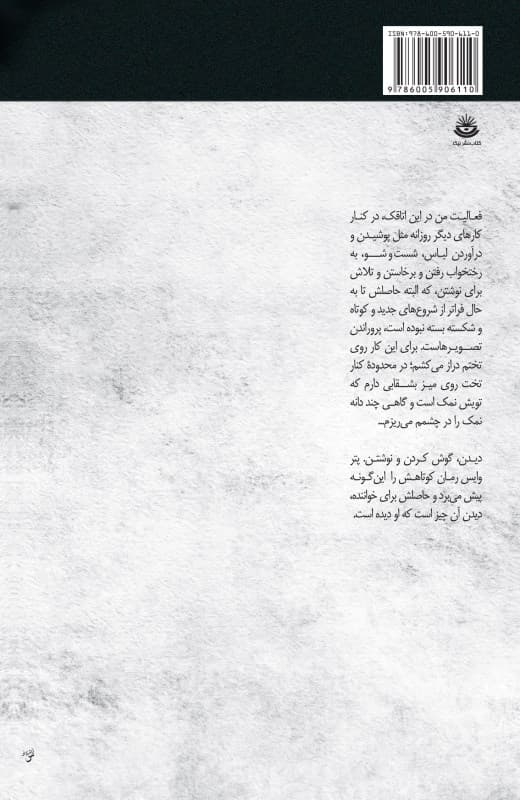 ISBN:978-600-590-611-0
9 786005 906110
کتاب نشر نیکا
فعالیت من در این اتاقک، در کنار
کارهای دیگر روزانه مثل پوشیدن و
درآوردن لباس، شست‌و‌شـو، به
رختخواب رفتن و برخاستن و تلاش
برای نوشتن، که البته حاصلش تا به
حال فراتر از شروع‌های جدید و کوتاه
و شکسته بسته نبوده است، پروراندن
تصـویـرهاست. برای این کار روی
تختم دراز می‌کشم؛ در محدودهٔ کنار
تخت روی میـز بشـقابی دارم که
تویش نمک است و گاهـی چند دانه
نمک را در چشمم می‌ریزم...
دیـدن، گوش کـردن و نوشتـن. پتر
وایس رمـان کوتاهـش را این‌گـونـه
پیش می‌بـرد و حاصلش برای خواننده،
دیدن آن چیز است که او دیده است.